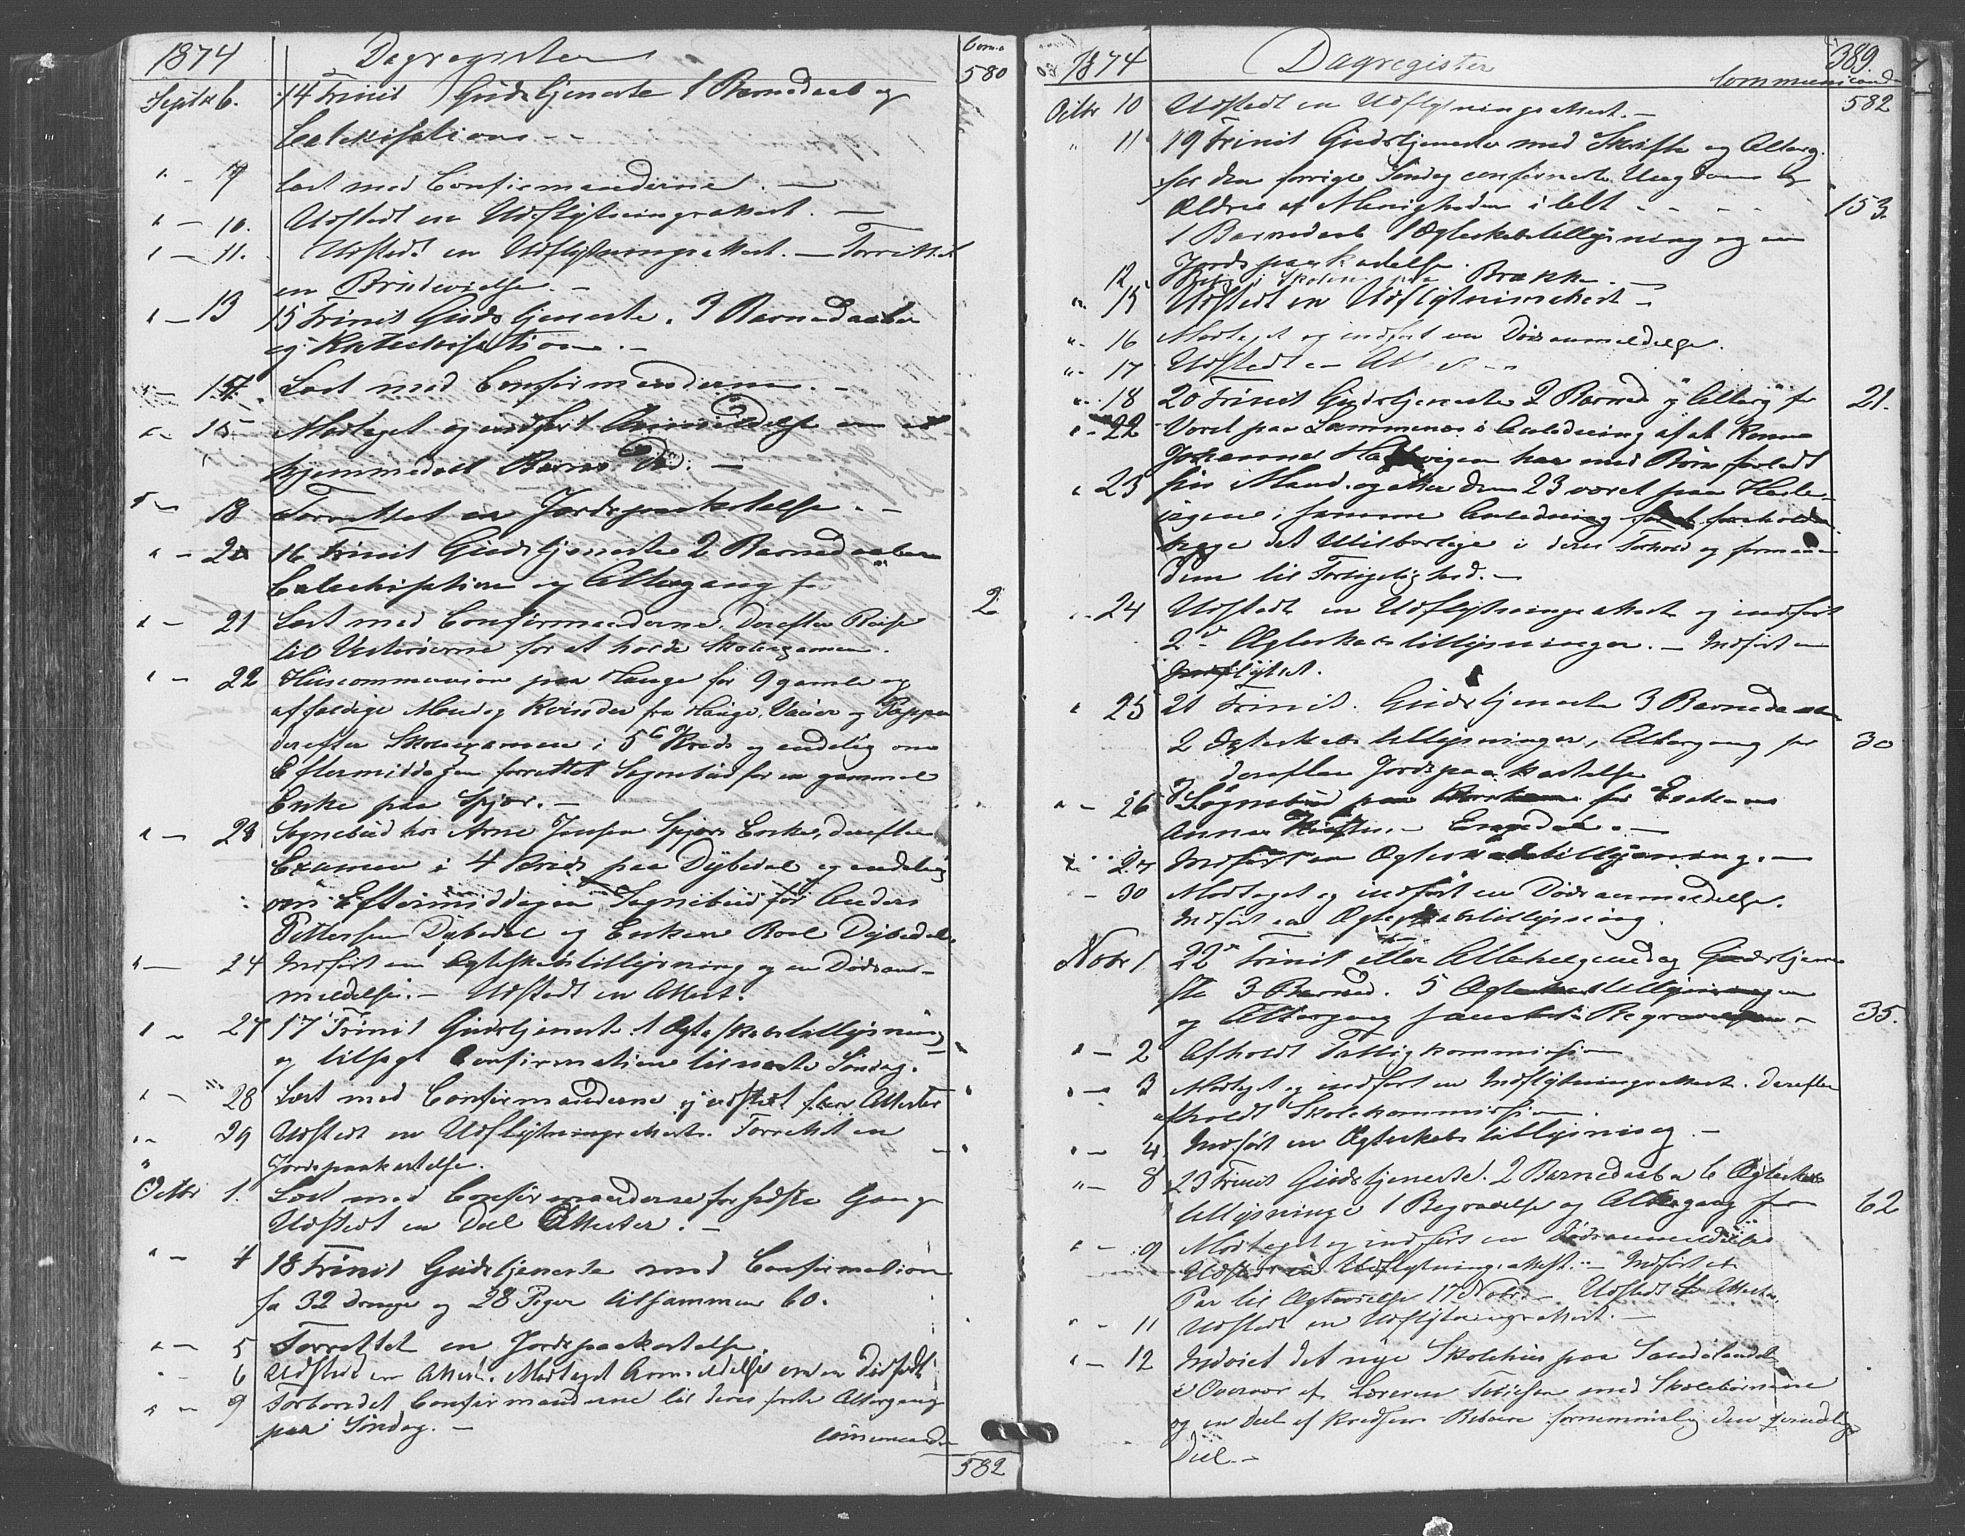 1874 Dagregister Com. 580
Septbr 6. 14 Trinit Gudstjeneste 1 Barnedaab og
Catekisation. -
" - 7 Læst med Confirmanderne. -
" - 10. Udstedt en Udflytningsattest. -
" - 11. Udstedt en Udflytningsattest. - Forrettet
en Brudevielse. -
" - 13 15 Trinit Gudstjeneste. 3 Barnedaaber
og Katekisation. -
" - 14. Læst med Confirmanderne. -
" - 15 Modtaget og indført Anmeldelse om et
hjemmedøbt Barns Død. -
" - 18 Forrettet en Jordspaakastelse. -
" - 20 16 Trinit Gudstjeneste 2 Barnedaaber
Catechisation og Altergang for 2
" - 21 Læst med Confirmanderne. Derefter Reise
til Vesterøerne for at holde Skoleexamen.
" - 22 Huscommunion paa Hauge for 9 gamle og
affældige Mænd og Kvinder fra Hauge, og
derefter Skoleexamen i 5 Kreds og endelig om
Eftermiddagen forrettet Sognebud for en gammel
Enke paa Spjær. -
" - 23 Sognebud hos Arne Spjær Enke, derefter
Examen i 4 Kreds paa Dybedal og endelig
om Eftermiddagen Sognebud for Anders
Pettersen Dybedal og Enken Dybedal.
" - 24 Indført en Ægteskabstillysning og en Dødsan-
meldelse. - Udstedt en Attest.
" - 27 17 Trinit Gudstjeneste 1 Ægteskabstillysning
og tilsagt Confirmation til næste Søndag.
" - 28 Læst med Confirmanderne og udstedt flere Attester
" - 29 Udstedt en Udflytningsattest. Forrettet en
" Jordspaakastelse.
Octbr 1. Læst med Confirmanderne for sidste Gang
Udstedt en Deel Attester. -
" - 4 18 Trinit Gudstjeneste med Confirmation
fa 32 Drenge og 28 Piger tilsammen 60.
" - 5 Forrettet en Jordspaakastelse.
" - 6 Udstedt en Attest. Modtaget Anmeldelse om en Dødfødt
" - 9 Forberedet Confirmanderne til deres første Altergang
paa Søndag. -
582
1874 Dagregister 389
Communicander
Octbr 10 Udstedt en Udflytningsattest. - 582
" 11 19 Trinit Gudstjeneste med Skrifte og Alterg.
for den forrige Søndag confirmerte Ungdom og
Ældre af Menigheden i alt - - - - 153.
1 Barnedaab 1 Ægteskabstillysning og en
Jordspaakastelse.
12 i Skolen Brække. -
" 15 Udstedt en Udflytningsattest -
" 16 Modtaget og indført en Dødsanmeldelse.
" 17 Udstedt en
" 18 20 Trinit Gudstjeneste 2 Barned og Alterg for 21.
" - 22 Været paa i Anledning af at Konen
Johanne har med Børn forladt
" 23 sin Mand og atter den 23 været paa
i samme Anledning for at foreholde
begge det Utilbørlige i deres Forhold og formane
dem til Forligelighed. -
" - 24 Udstedt en Udflytningsattest og indført
2de Ægteskabstillysninger. - Indført en
Indflyttet.
" 25 21 Trinit. Gudstjeneste 3 Barnedaaber
2 Ægteskabstillysninger, Altergang for 30
derefter Jordspaakastelse
" - 26 Sognebud paa for Enken
Anne -
" 27 Indført en Ægteskabstillysning. -
- 30 Modtaget og indført en Dødsanmeldelse.
Indført en Ægteskabstillysning.
Novbr 1 22de Trinit eller Allehelgensdag Gudstjene-
ste 3 Barned. 5 Ægteskabstillysninger
og Altergang samt Begravelse - 35.
" - 2 Afholdt Fattigkommission
" - 3 Modtaget og indført en Indflytningsattest. Derefter
afholdt Skolekommission.
" - 4. Indført en Ægteskabstillysning. -
" - 8 23 Trinit Gudstjeneste. 2 Barnedaaber 6 Ægteskabs
tillysninge 1 Begravelse og Altergang for 62
" - 9 Modtaget og indført en Dødsanmeldelse
Udstedt en Udflytningsattest. - Indført et
Par til Ægtevielse 17 Novbr. Udstedt Attester.
" - 11 Udstedt en Udflytningsattest. -
" - 12 Indviet det nye Skolehuus paa
i Overvær af Læreren med Skolebørnene
og en Deel af Kredsens Beboere fornemmelig den qvindelige
Deel. -